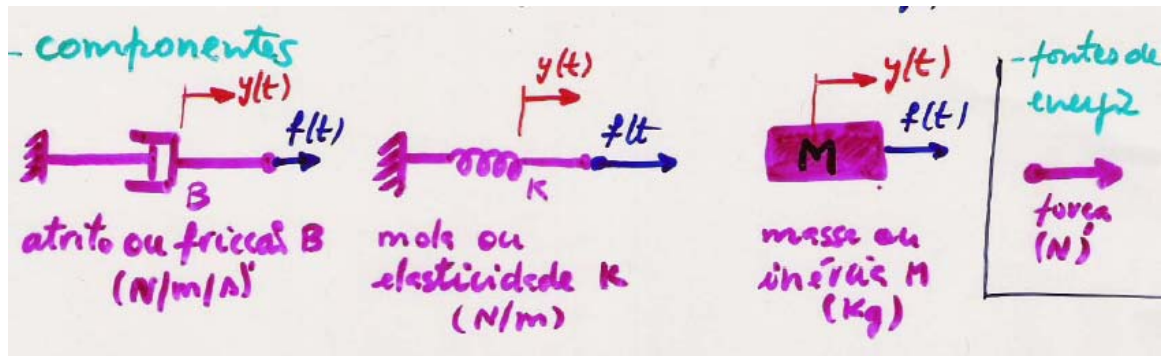 - componentes
y(t)
f(t)
B
atrito ou fricção B
(N/m/s)
y(t)
f(t
K
mola ou
elasticidade K
(N/m)
y(t)
f(t)
M
massa ou
inércia M
(Kg)
- fontes de
energia
força
(N)